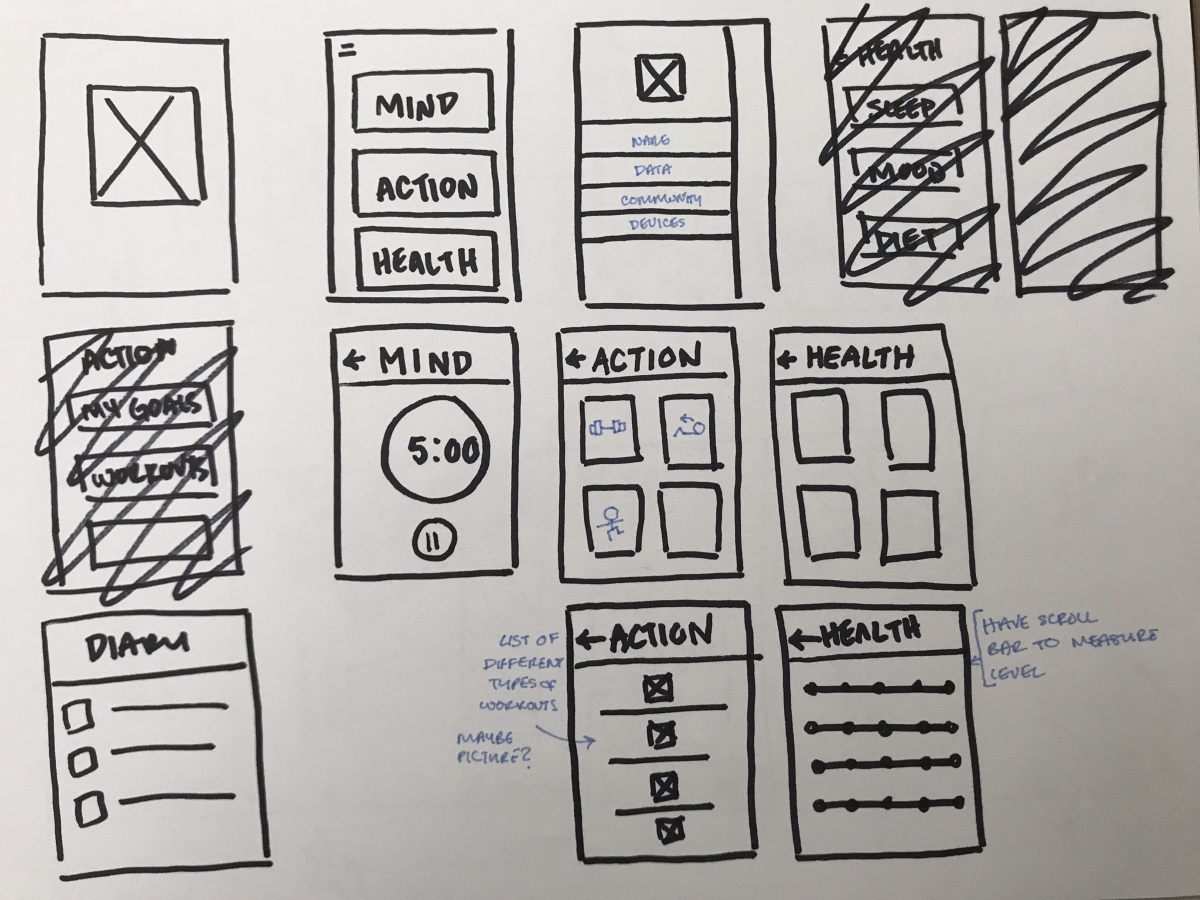 MIND
ACTION
HEALTH
NAME
DATA
COMMUNITY
DEVICES
HEALTH
SLEEP
MOOD
DIET
ACTION
MY GOALS
WORKOUTS
← MIND
5:00
← ACTION
← HEALTH
DIARY
LIST OF
DIFFERENT
TYPES OF
WORKOUTS
MAYBE
PICTURE?
← ACTION
← HEALTH
HAVE SCROLL
BAR TO MEASURE
LEVEL